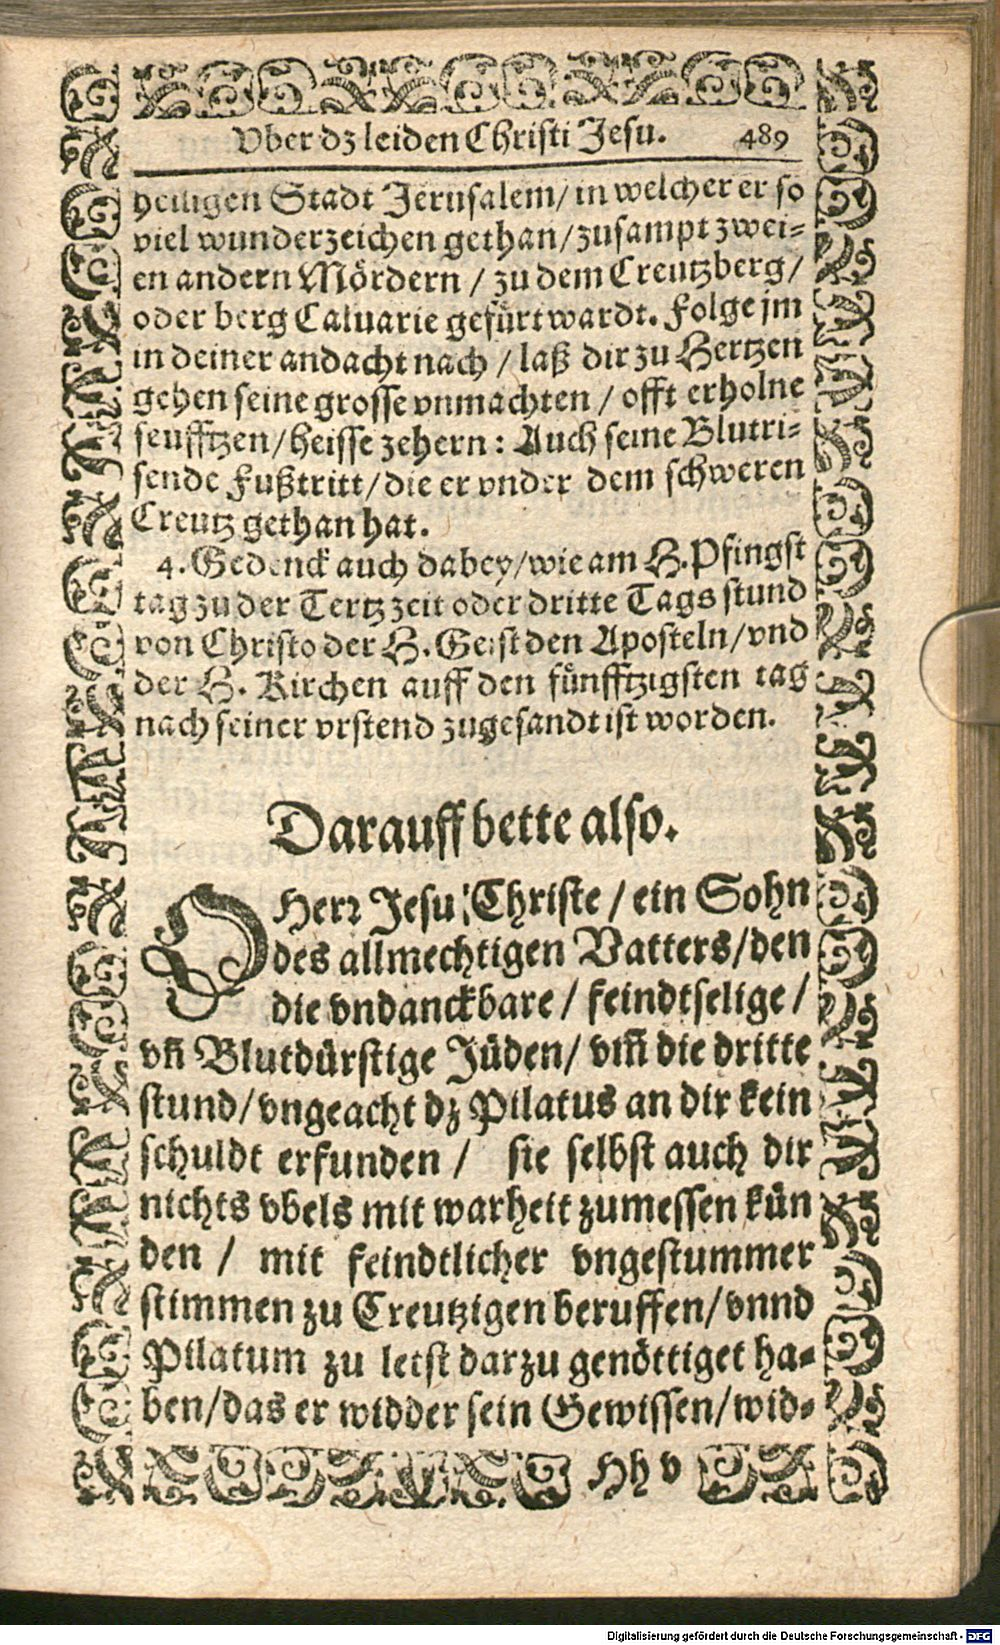 Vber dz leiden Christi Jesu. 489
heiligen Stadt Jerusalem/ in welcher er so
viel wunderzeichen gethan/zusampt zwei=
en andern Mördern / zu dem Creutzberg/
oder berg Caluarie gefürt wardt. Folge jm
in deiner andacht nach / laß dir zu Hertzen
gehen seine grosse vnmachten / offt erholne
seufftzen/heisse zehern: Auch seine Blutri=
sende Fußtritt/die er vnder dem schweren
Creutz gethan hat.
4. Gedenck auch dabey/wie am H. Pfingst
tag zu der Tertz zeit oder dritte Tags stund
von Christo der H. Geist den Aposteln/vnd
der H. Kirchen auff den fünfftzigsten tag
nach seiner vrstend zugesandt ist worden.
Darauff bette also.
O Herr Jesu Christe / ein Sohn
des allmechtigen Vatters/den
die vndanckbare / feindtselige /
vñ Blutdürstige Jüden/ vm̃ die dritte
stund/vngeacht dz Pilatus an dir kein
schuldt erfunden / sie selbst auch dir
nichts vbels mit warheit zumessen kün
den / mit feindtlicher vngestummer
stimmen zu Creutzigen beruffen/vnnd
Pilatum zu letst darzu genöttiget ha=
ben/das er widder sein Gewissen/wid=
Hh v
Digitalisierung gefördert durch die Deutsche Forschungsgemeinschaft - DFG